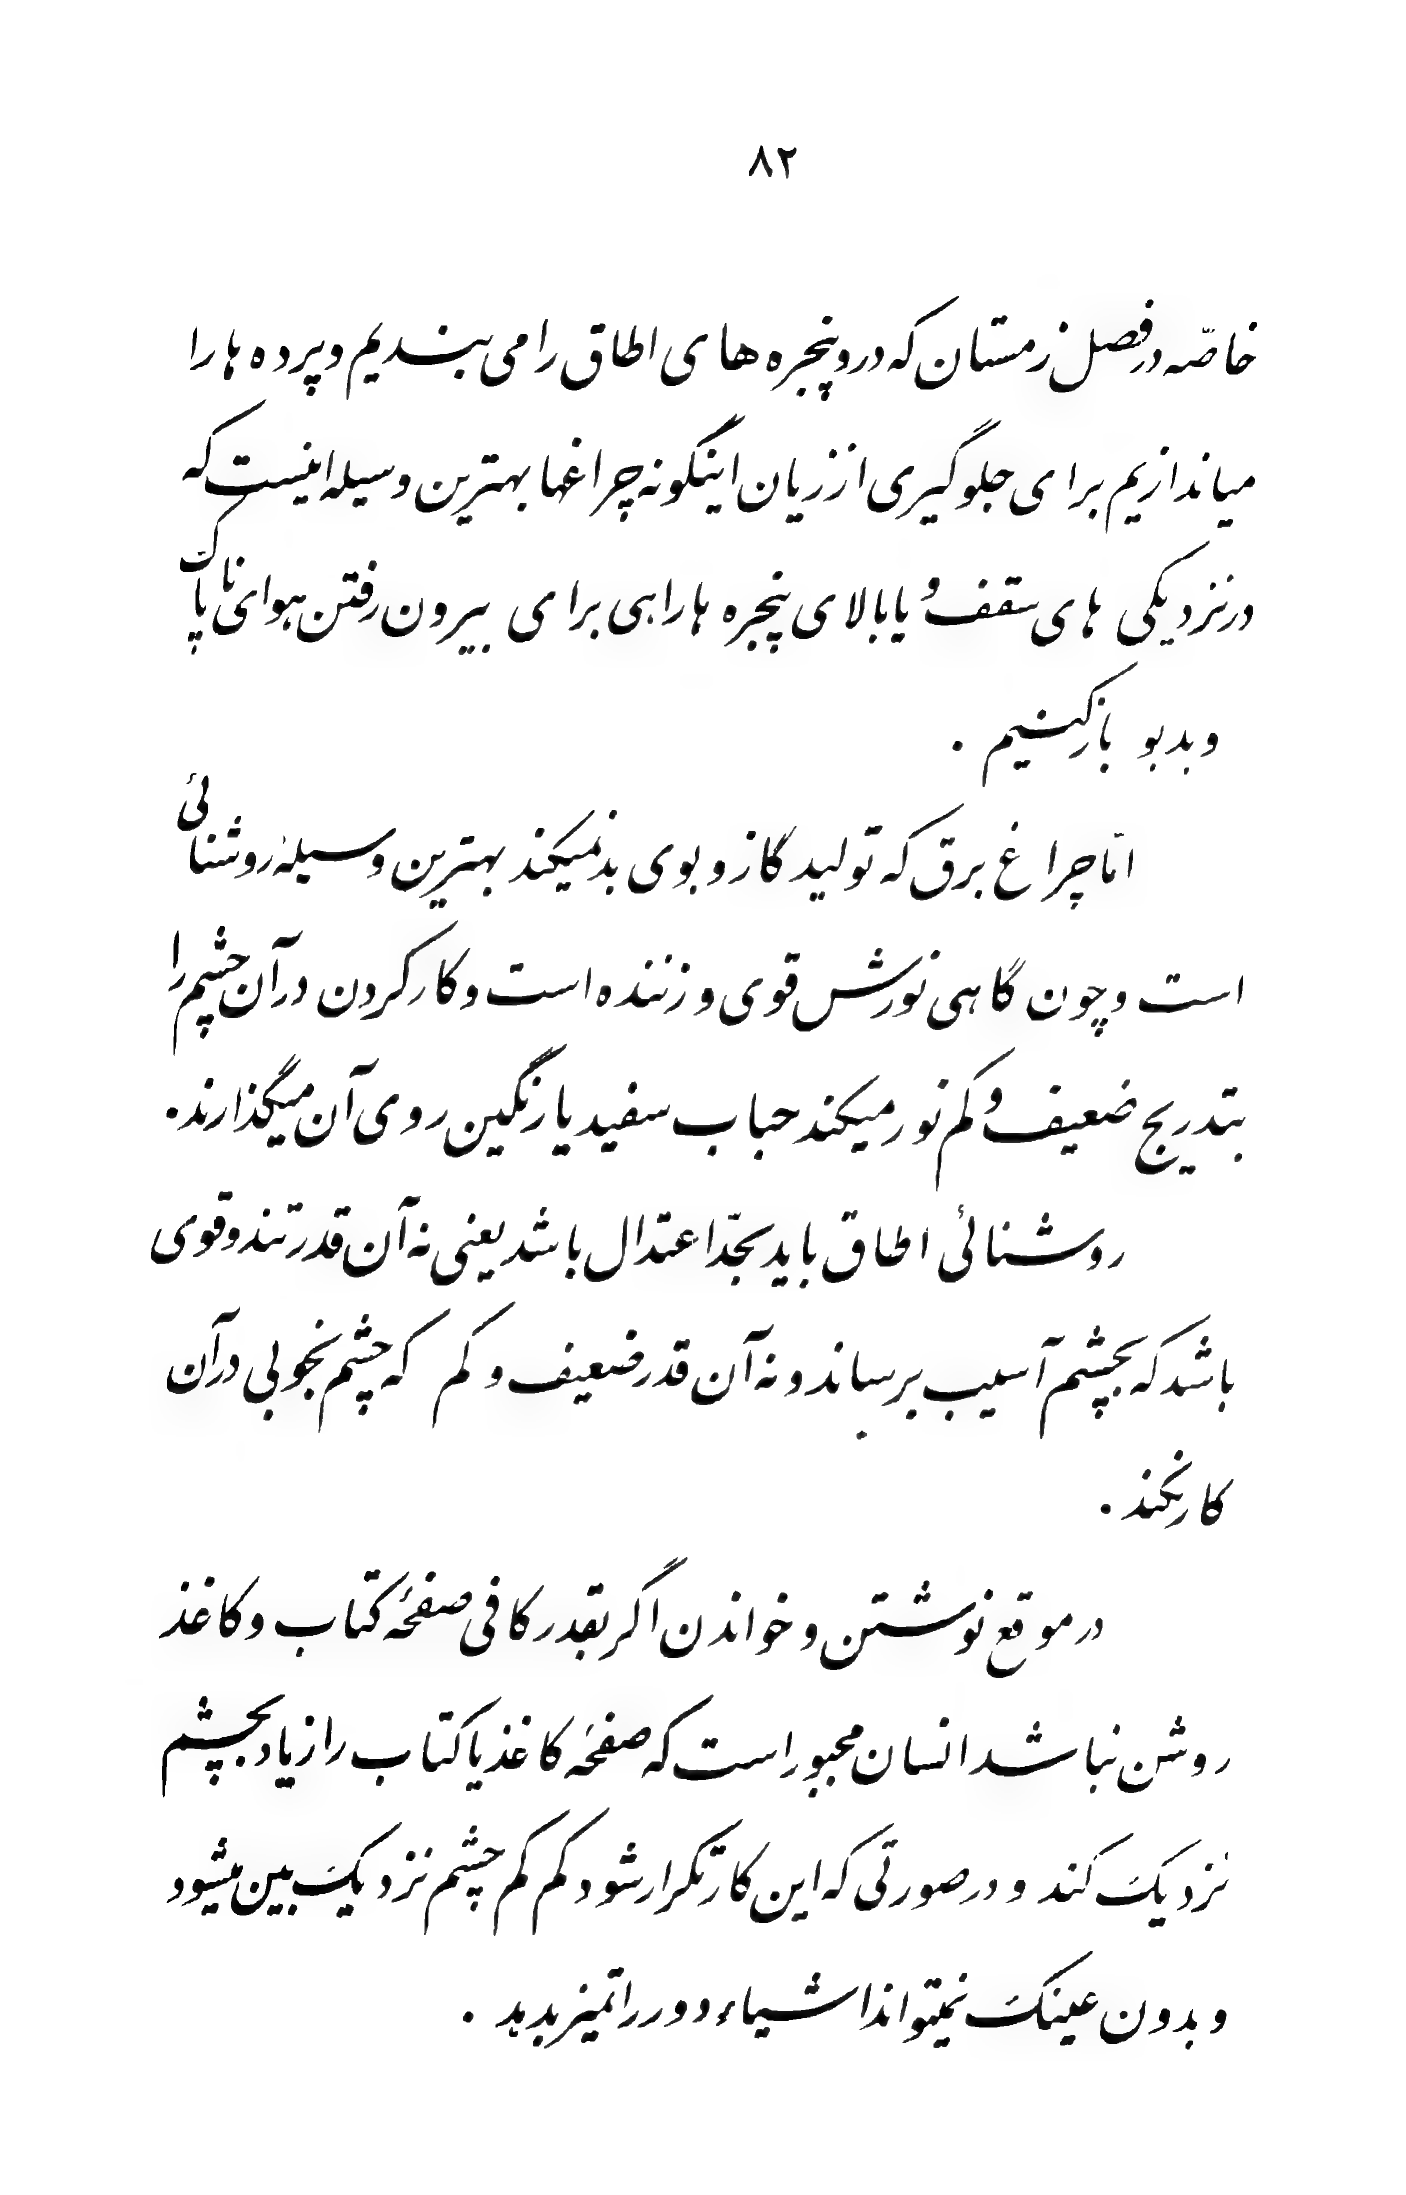 ۸۲
خاصّه در فصل زمستان که در و پنجره های اطاق را می بندیم و پرده ها را
میاندازیم برای جلوگیری از زیان اینگونه چراغها بهترین وسیله اینست که
در نزدیکی های سقف و یا بالای پنجره ها راهی برای بیرون رفتن هوای ناپاک
و بدبو باز کنیم .
امّا چراغ برق که تولید گاز و بوی بد نمیکند بهترین وسیلهٔ روشنائی
است و چون گاهی نورش قوی و زننده است و کار کردن در آن چشم را
بتدریج ضعیف و کم نور میکند حباب سفید یا رنگین روی آن میگذارند .
روشنائی اطاق باید بحدّ اعتدال باشد یعنی نه آن قدر تند و قوی
باشد که بچشم آسیب برساند و نه آن قدر ضعیف و کم که چشم بخوبی در آن
کار نکند .
در موقع نوشتن و خواندن اگر بقدر کافی صفحهٔ کتاب و کاغذ
روشن نباشد انسان مجبور است که صفحهٔ کاغذ یا کتاب را زیاد بچشم
نزدیک کند و در صورتی که این کار تکرار شود کم کم چشم نزدیک بین میشود
و بدون عینک نمیتواند اشیاء دور را تمیز بدهد .